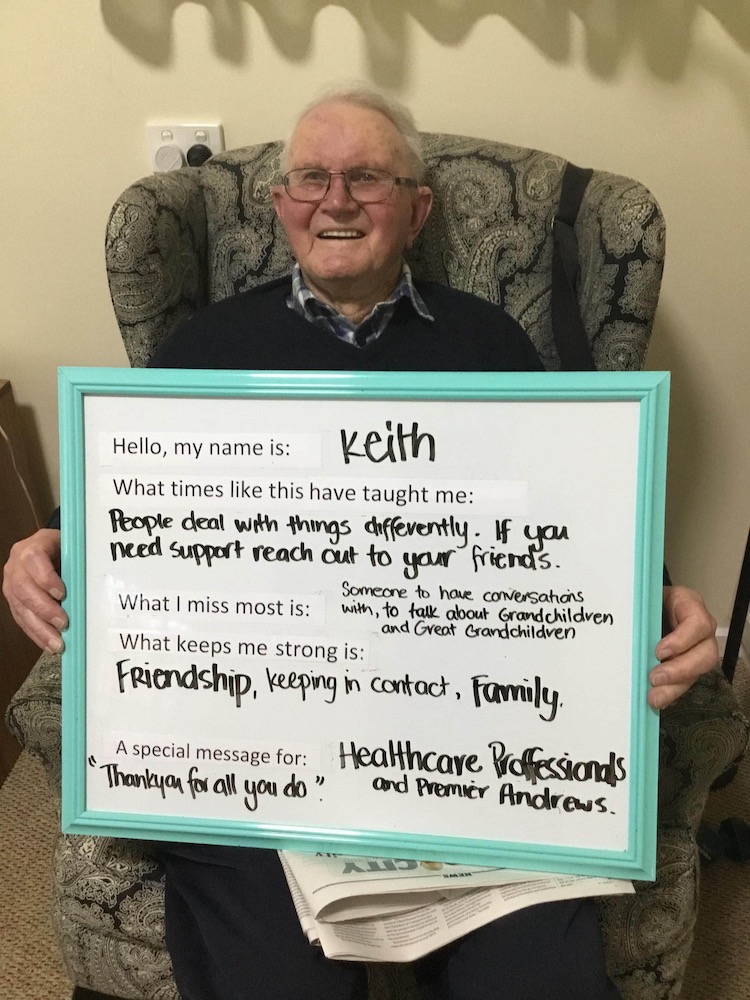 Hello, my name is: Keith
What times like this have taught me:
People deal with things differently. If you
need support reach out to your friends.
What I miss most is: Someone to have conversations
with, to talk about Grandchildren
and Great Grandchildren
What keeps me strong is:
Friendship, keeping in contact, Family.
A special message for: Healthcare Proffessionals
and Premier Andrews.
"Thankyou for all you do"
CITY
NEWS